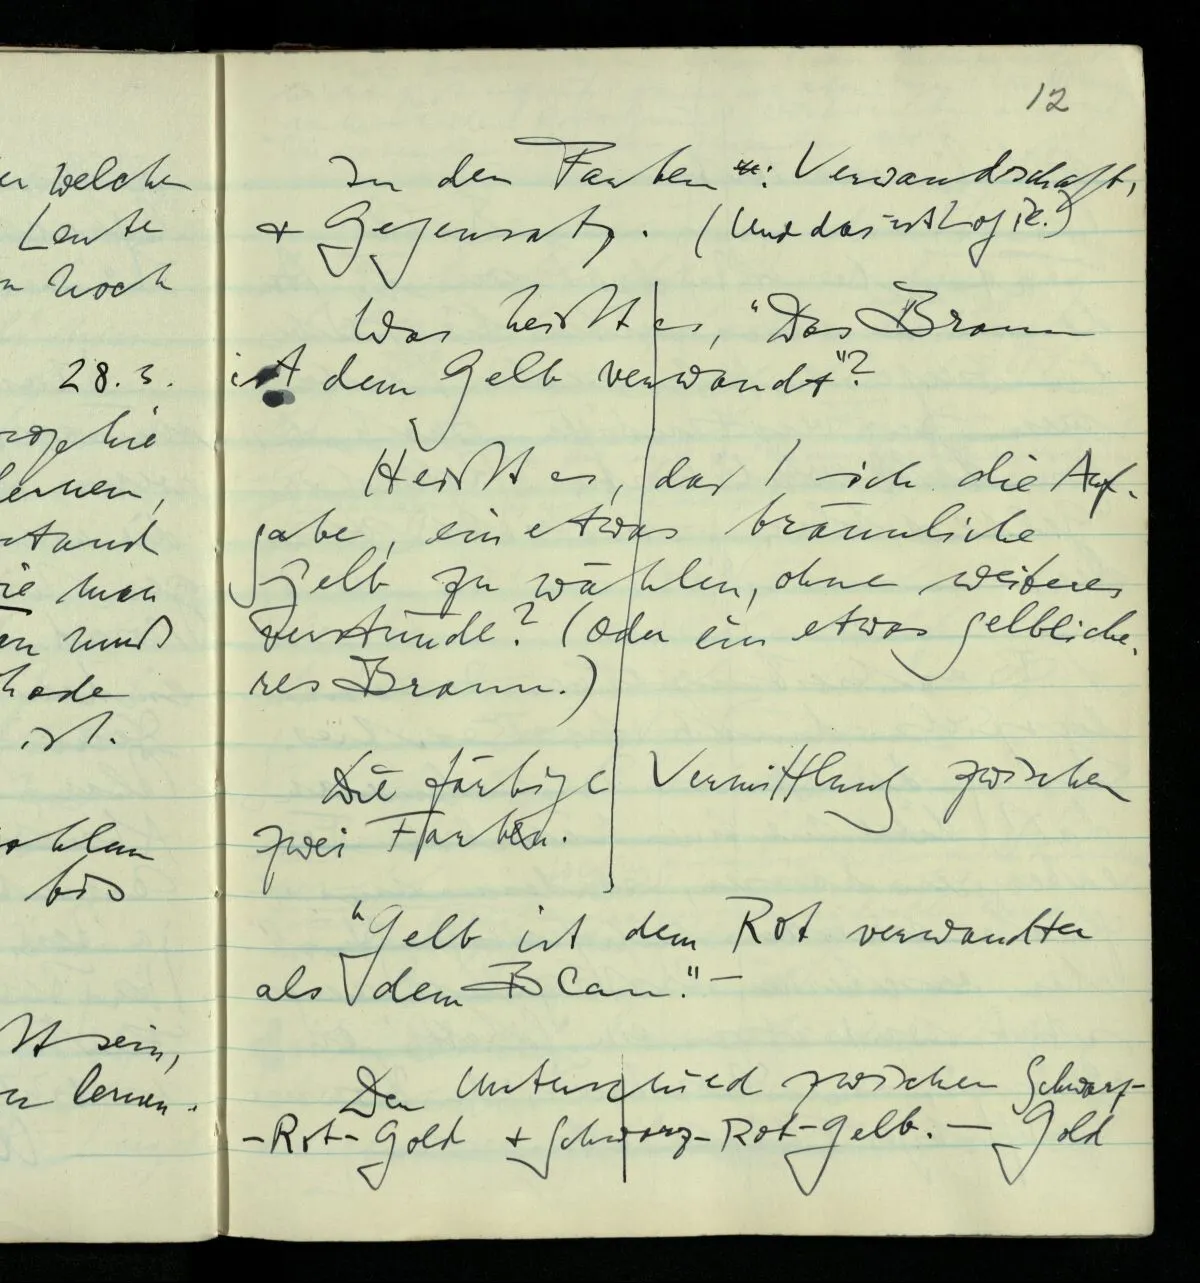 12
er welchen
Leute
n noch
28.3.
osophie
lernen,
stand
wie man
en muß
hade
ist.
bis
tt sein,
er lernen.
In den Farben: Verwandschaft,
+ Gegensatz. (Und das ist Logik.)
Was heißt es, "Das Braun
ist dem Gelb verwandt"?
Heißt es, daß ich die Auf-
gabe, ein etwas bräunliche
Gelb zu wählen, ohne weiteres
verstünde? (Oder ein etwas gelbliche-
res Braun.)
Die färbige Vermittlung zwischen
zwei Farben.
"Gelb ist dem Rot verwandter
als dem Blau." –
Der Unterschied zwischen Schwarz-
-Rot-Gold + Schwarz-Rot-Gelb. – Gold